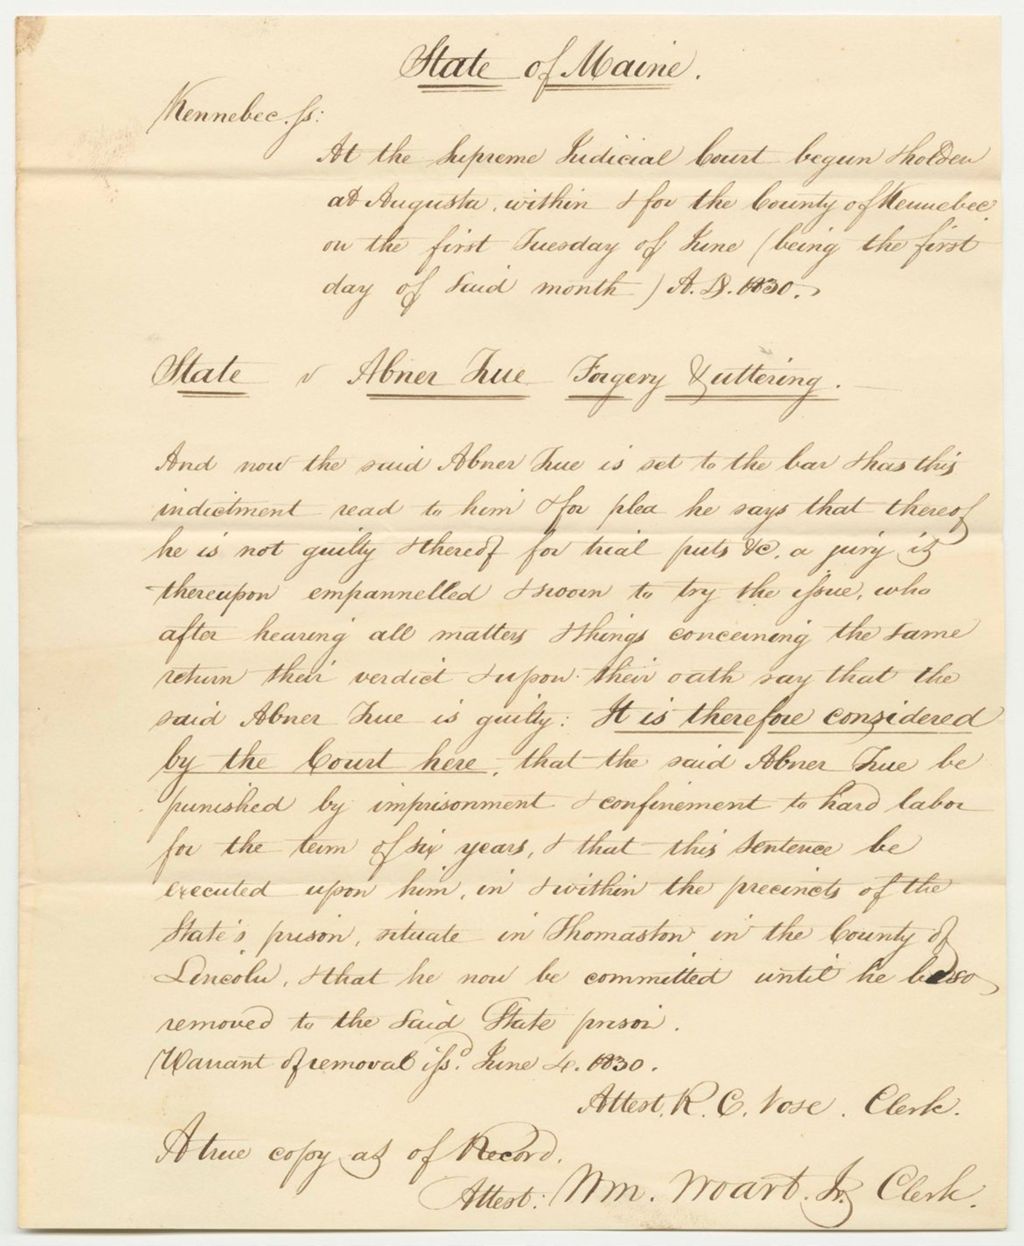 State of Maine.
Kennebec. ss:
At the Supreme Judicial Court begun & holden
at Augusta, within & for the County of Kennebec
on the first Tuesday of June (being the first
day of said month) A. D. 1830.
State v Abner True Forgery & uttering.
And now the said Abner True is set to the bar & has this
indictment read to him & for plea he says that thereof
he is not guilty & thereof for trial puts &c. a jury is
thereupon empannelled & sworn to try the issue, who
after hearing all matters & things concerning the same
return their verdict & upon their oath say that the
said Abner True is guilty: It is therefore considered
by the Court here, that the said Abner True be
punished by imprisonment & confinement to hard labor
for the term of six years, & that this sentence be
executed upon him, in & within the precincts of the
State's prison, situate in Thomaston in the County of
Lincoln, & that he now be committed until he be so
removed to the said State prison.
Warrant of removal issd. June 4. 1830.
Attest, R. C. Vose. Clerk.
A true copy as of Record.
Attest: Wm. Woart. Jr. Clerk.